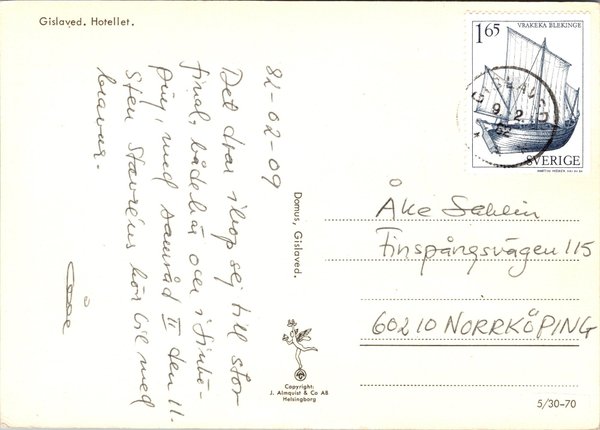 Gislaved. Hotellet.
1,65
VRAKEKA BLEKINGE
SVERIGE
GISLAVED
9.2.
82
82-02-09
Det drar ihop sej till stor-
final, både här och i
med samråd II den 11.
Sten hör till med
Domus, Gislaved.
Åke Sahlin
Finspångsvägen 115
60210 NORRKÖPING
Copyright:
J. Almquist & Co AB
Helsingborg
5/30-70